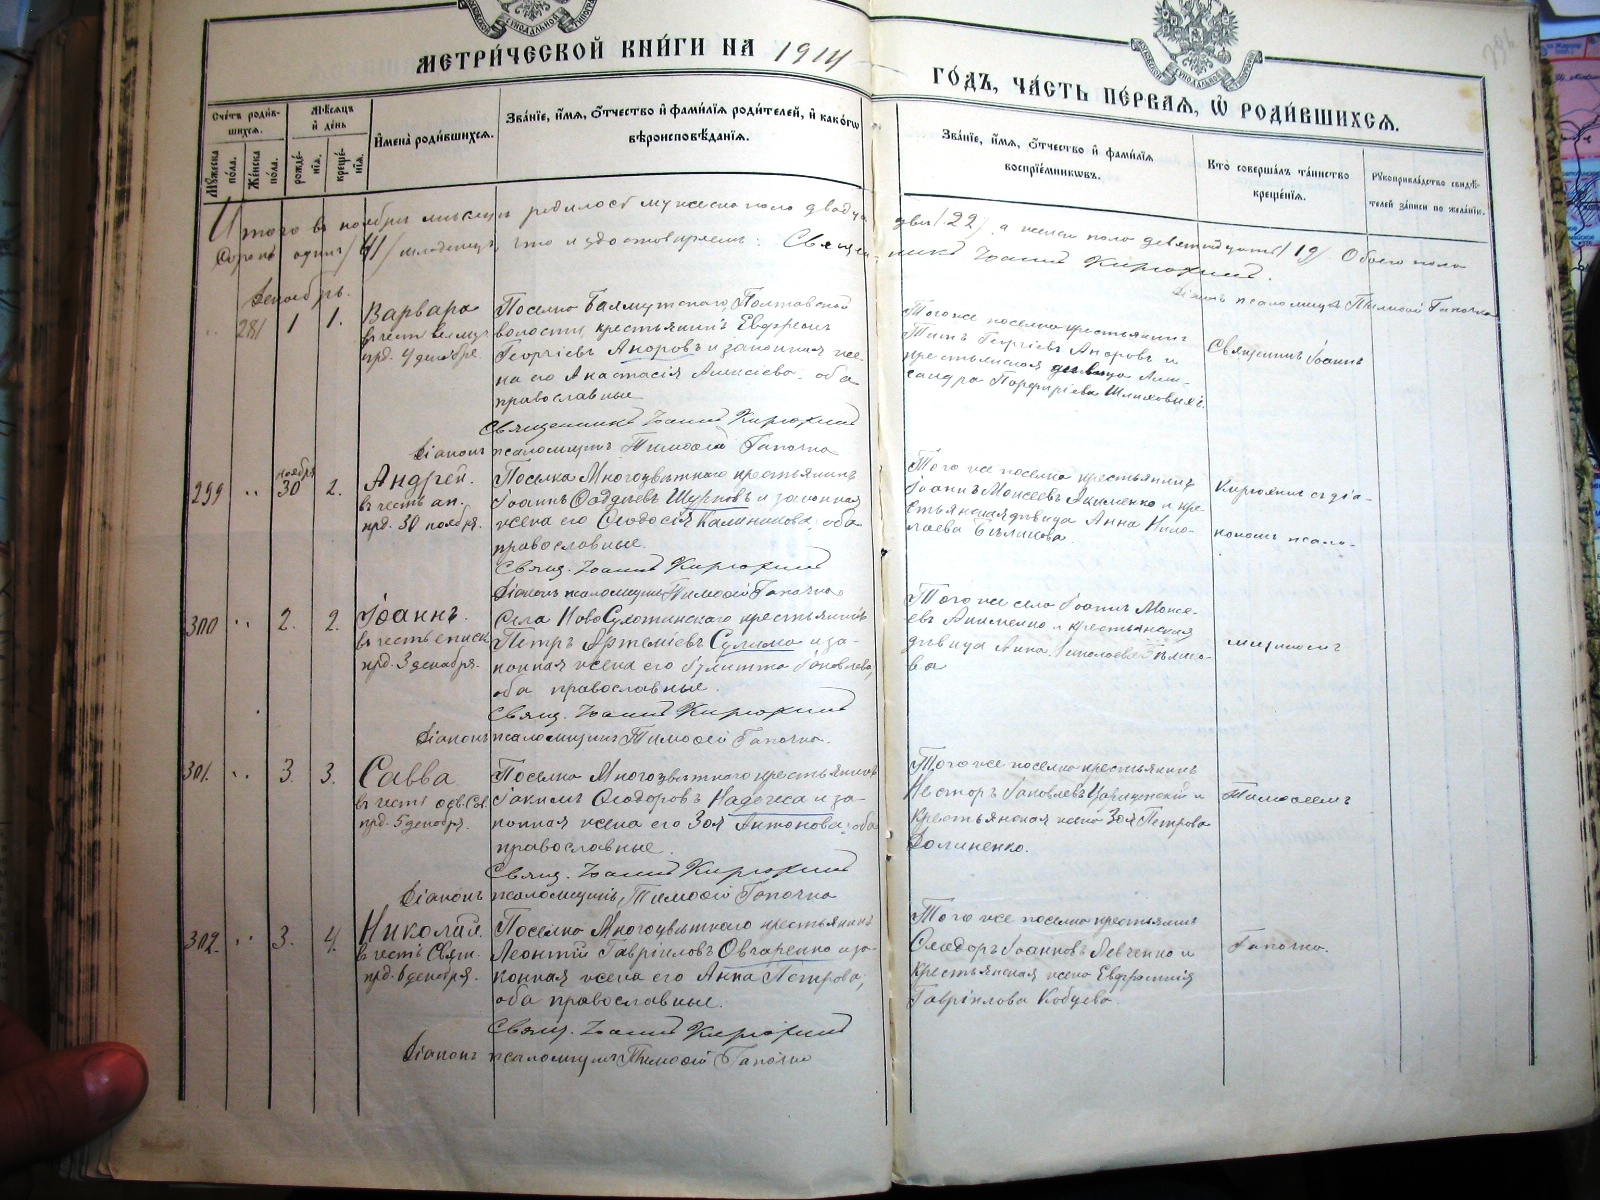 МЕТРИ́ЧЕСКОЙ КНИ́ГИ НА 1914
ГО́ДЪ, ЧА́СТЬ ПЕ́РВАѦ, Ѽ РОДИ́ВШИХСѦ.
Сче́тъ роди́в-
шихсѧ.
Мѣ́сѧцъ
и҆ де́нь
Мꙋ́жеска
по́ла.
Же́нска
по́ла.
рожде́-
нїѧ.
креще́-
нїѧ.
И҆мена̀ роди́вшихсѧ.
Зва́нїе, и҆́мѧ, ѻ҆́тчество и҆ фами́лїѧ роди́телей, и҆ како́гѡ
вѣроисповѣ́данїѧ.
Зва́нїе, и҆́мѧ, ѻ҆́тчество и҆ фами́лїѧ
воспрїе́мникѡвъ.
Кто̀ соверша́лъ та́инство
креще́нїѧ.
Рꙋкоприкла́дство свидѣ́-
телей за́писи по жела́нїю.
Итого въ ноябрѣ мѣсяцѣ родилось мужеска пола двадца
два /22/, а женска пола девятнадцать /19/ Обоего пола
Сорокъ одинъ /41/ младенецъ, что и удостовѣряемъ: Священ-
никъ Іоаннъ Кирюхинъ.
Діаконъ псаломщикъ Тимоѳей Гапочка
Декабрь.
281 1 1.
Варвара
въ честь велмуч.
прд. 4 декабря.
Поселка Бахмутскаго, Полтавской
волости, крестьянинъ Евфреимъ
Георгіевъ Аноровъ и законная же-
на его Анастасія Алексіева, оба
православные
Того же поселка крестьянинъ
Титъ Георгіевъ Аноровъ и
крестьянская дѣвица Алек-
сандра Порфиріева
Священникъ Іоаннъ
Священникъ Іоаннъ Кирюхинъ
Діаконъ псаломщикъ Тимоѳей Гапочка
299 " ноября 30 2.
Андрей.
въ честь ап.
прд. 30 ноября.
Поселка Многоцвѣтнаго крестьянинъ
Іоаннъ Ѳаддеевъ Шурповъ и законная
жена его Ѳеодосія Калиникова, оба
православные.
Того же поселка крестьянинъ
Іоаннъ Моисеевъ Якименко и кре-
стьянская дѣвица Анна Нико-
лаева Бѣликова
Кирюхинъ съ діа-
кономъ псало-
Свящ. Іоаннъ Кирюхинъ
Діаконъ псаломщикъ Тимоѳей Гапочка
300 " 2. 2.
Іоаннъ.
въ честь еписк.
прд. 3 декабря.
Села НовоСухотинскаго крестьянинъ
Петръ Артеміевъ Сулима и за-
конная жена его Іулитта Іаковлева,
оба православные.
Того же села Іоаннъ Моисе-
евъ Акименко и крестьянская
дѣвица Анна Николаева Бѣлико-
ва
мщикомъ
Свящ. Іоаннъ Кирюхинъ
Діаконъ псаломщикъ Тимоѳей Гапочка.
301. " 3. 3.
Савва
въ честь
прд. 5 декабря.
Поселка Многоцвѣтнаго крестьянинъ
Іакимъ Ѳеодоровъ Надечеса и за-
конная жена его Зоя Антонова; оба
православные.
Того же поселка крестьянинъ
Несторъ Іаковлевъ и
крестьянская жена Зоя Петрова
Долиненко.
Тимоѳеемъ
Свящ. Іоаннъ Кирюхинъ
Діаконъ псаломщикъ, Тимоѳей Гапочка
302. " 3. 4.
Николай.
въ честь Святи.
прд. 6 декабря.
Поселка Многоцвѣтнаго крестьянинъ
Леонтій Гавріиловъ Овчаренко и за-
конная жена его Анна Петрова;
оба православные.
Того же поселка крестьянинъ
Ѳеодоръ Іоанновъ Левченко и
крестьянская жена Евфросинія
Гавріилова Кобцева.
Гапочка.
Свящ. Іоаннъ Кирюхинъ
Діаконъ псаломщикъ Тимоѳей Гапочка